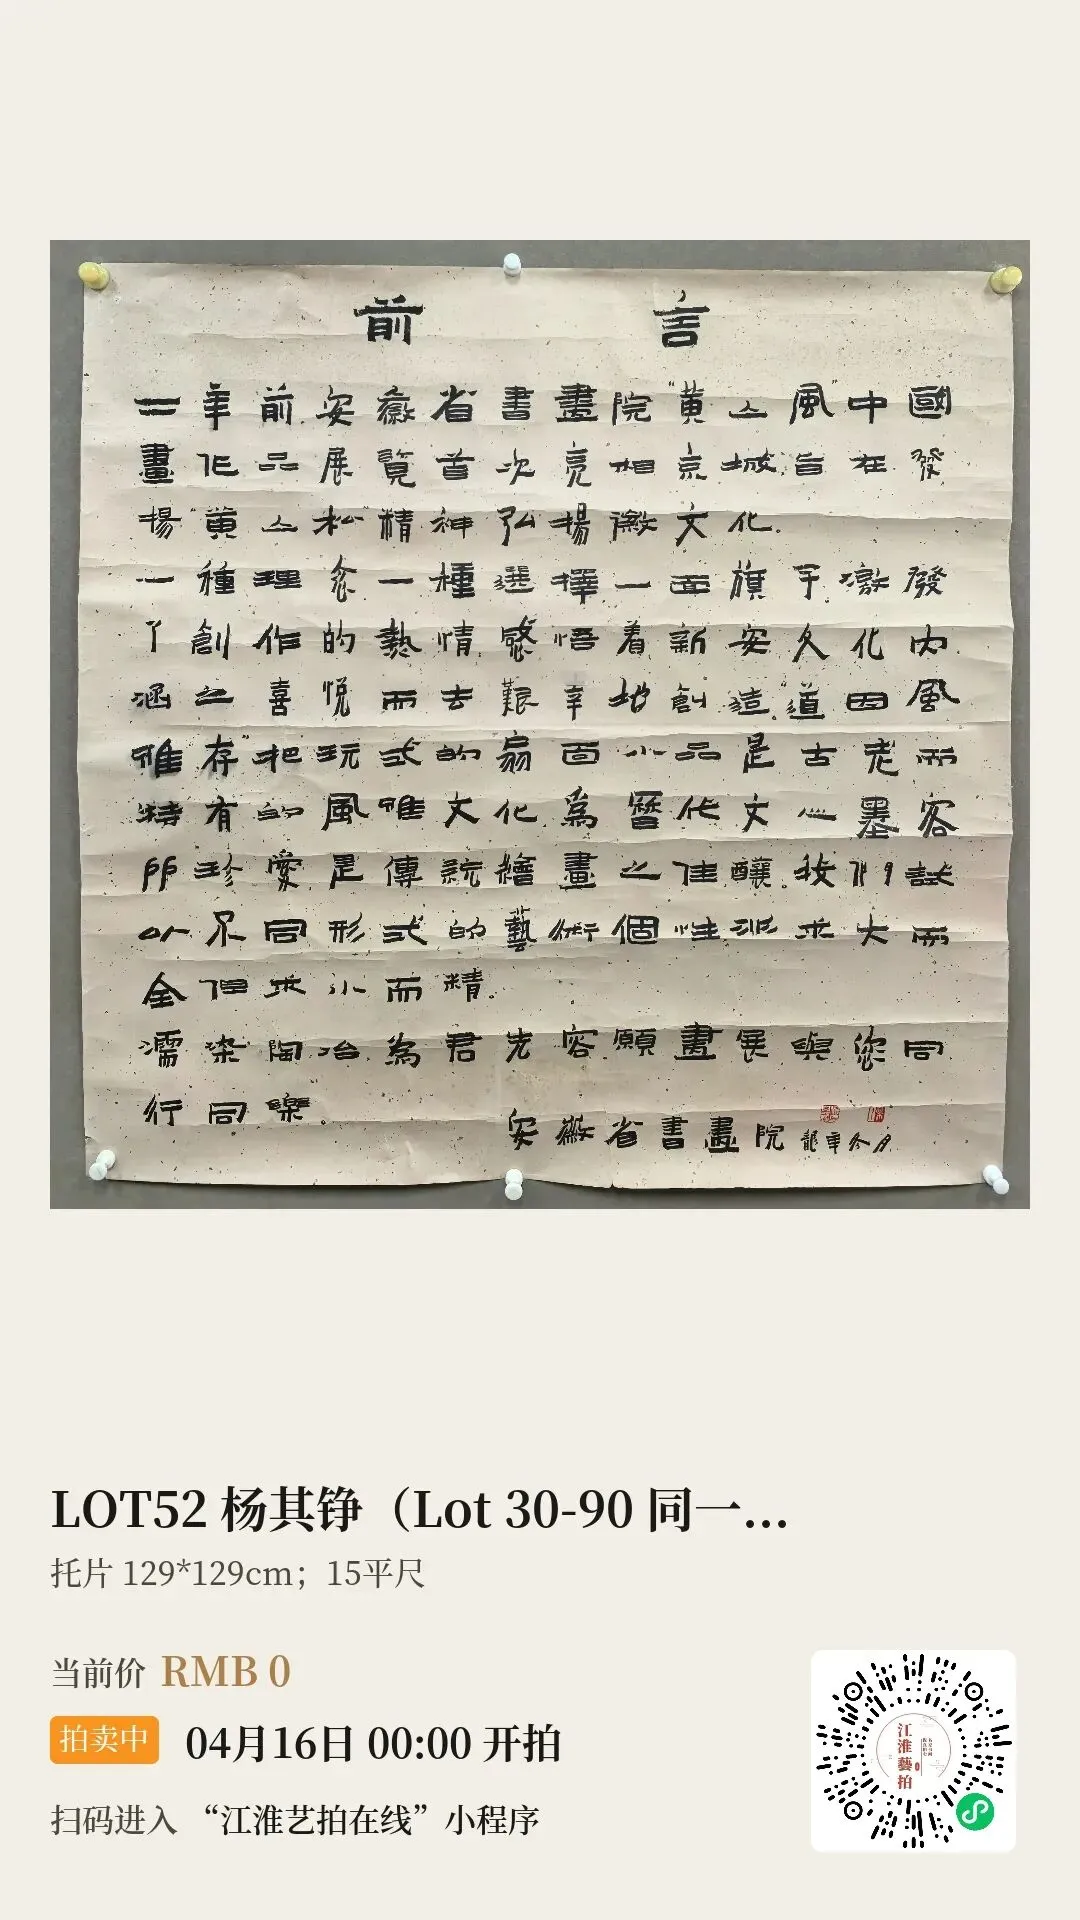 前言
二年前安徽省書畫院"黄山風"中國
畫作品展覽首次亮相京城旨在發
揚"黄山松"精神弘揚徽文化.
一種理念一種選擇一面旗子激發
了創作的熱情感悟着新安文化内
涵之喜悦而去艱辛地創造"道因風
雅存"把玩式的扇面小品是古老而
特有的風雅文化為曆代文人墨客
所珍愛是傳統繪畫之佳釀我們試
以不同形式的藝術個性亦求大而
全但求小而精.
濡染陶冶為君先容願畫展與您同
行同樂.
安徽省書畫院龍年冬月
LOT52 杨其铮（Lot 30-90 同一...
托片 129*129cm；15平尺
当前价 RMB 0
拍卖中 04月16日 00:00 开拍
扫码进入 “江淮艺拍在线”小程序
江淮藝拍